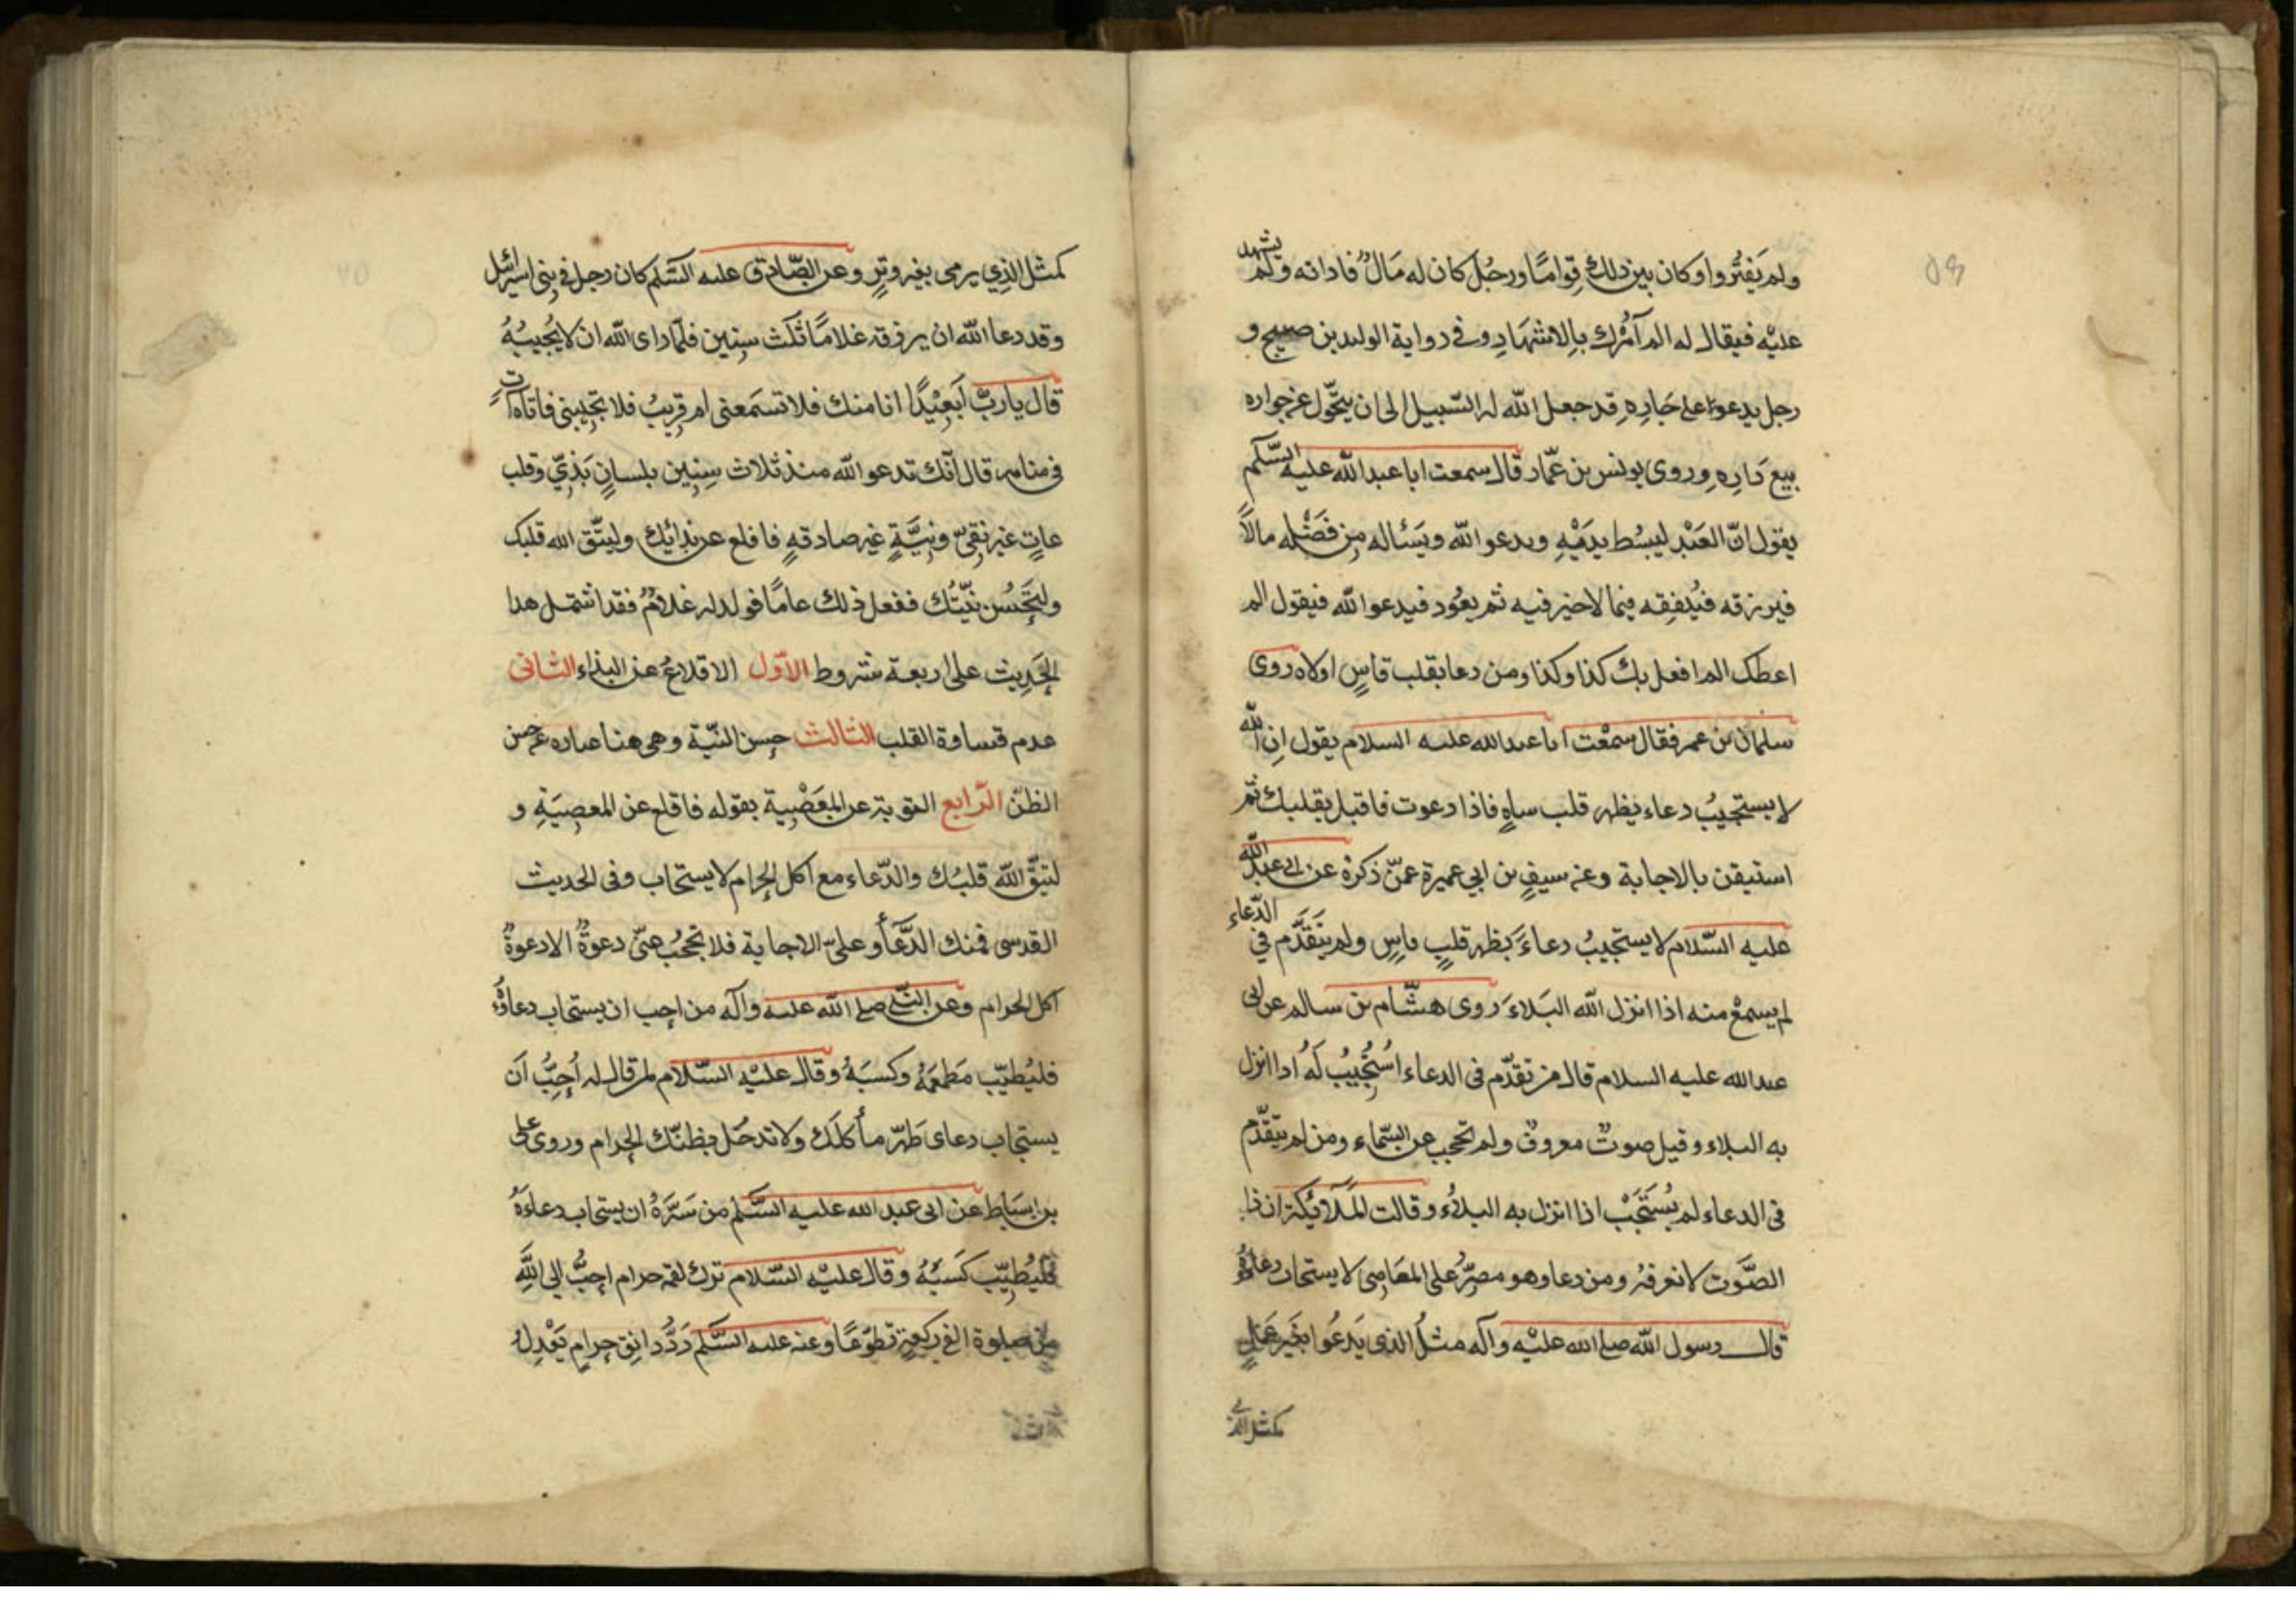 ولم يَفتُروا وكان بين ذلك قِوامًا ورجُل كان له مَالٌ فادانه ولم يشهد
عليْه فيقال له الم آمُرك بِالاشهَادِ وفى رواية الوليد بن صبيح و
رجل يدعوا على جَارِهِ قد جعل الله له السّبيل الى ان يتحّول عن جواره
ببيع دَارِهِ وروى يونس بن عمّار قال سمعت ابا عبد الله عليه السّلم
يقول انّ العَبْد ليبسُط يدَيْهِ ويدعو الله ويَسْئاله مِن فَضْله مالاً
فيرزقه فيُنفِقه فيما لاخير فيه ثم يعُود فيدعو الله فيقول الم
اعطك الم افعل بك كذا وكذا ومن دعا بقلب قاسٍ اولاه روى
سلمان بن عمر فقال سمعْت ابا عبد الله عليه السلام يقول اِن الله
لا يستجيبُ دعاء بظهر قلب ساهٍ فاذا دعوت فاقبل بقلبك ثم
استيقن بالاجابة وعن سيفٍ بن ابي عميرة عمّن ذكرهُ عن ابى عبد الله
عليه السّلام لا يستجيبُ دعاءً بظهر قلبٍ قاسٍ ولم يتَقَدَّم في الدّعاء
لم يسمعْ منه اذا انزل الله البَلاءَ روى هشّام بن سالم عن ابى
عبد الله عليه السلام قال من تقدّم فى الدعاء اسْتُجِيبُ لَهُ اذا انزل
به البلاء وقيل صوتٌ معروفٌ ولم تحجب عن السّماء ومن لم يتقدّم
فى الدعاء لم يُسْتَجَبْ اذا انزل به البلاُء وقالت المَلائِكة ان ذا
الصَّوت لا نعرفهُ ومن دعا وهو مصرٌّ على المعَاصِى لا يستجاب دعاؤهُ
قال رسول الله صلى الله عليْه وآله مثلُ الذى يَدعُوا بغَير عَمَلٍ
كمثل الذي
كمثل الذِي يرمى بغيرِ وتَرٍ وعن الصّادق عليه السّلم كان رجل في بنى اسرائيل
وقد دعا الله ان يرزقه غلامًا ثلث سِنين فلمّا راى الله ان لا يُجيبُهُ
قال يا ربّ اَبَعِيْدًا انا منك فلا تسمَعنى ام قرِيبٌ فلا تجُيبنى فاتاه آتٍ
فى منامه قال انّك تدعو الله منذ ثلاث سِنِين بلسانٍ بَذِيّ وقلب
عاتٍ غير نقِىّ ونِيَّةٍ غير صادقةٍ فاقلع عن بذائك وليتّق الله قلبك
وليَحَسُن نِيّتُك ففعل ذلك عامًا فولد له غلامٌ فقد اشتمل هذا
الحَدِيث على اربعة شروط الاوّل الاقلاعُ عن البذاء الثانى
عدم قساوة القلب الثالث حسن النّيّة وهى هنا عباره عن حسن
الظنّ الرّابع التوبة عن المَعْصِية بقوله فاقلع عن المعصِيَةِ و
لتيَّق الله قلبُك والدّعاء مع اكل الحرام لا يستجاب وفى الحديث
القدسى فمنك الدَّعَاُ وعلىّ الاجابة فلا تحجُب عنّى دعوةٌ الا دعوةُ
اكل الحرام وعن النبّى صلى الله عليه وآله من احب ان يستجاب دعاؤُه
فليُطيِّب مَطعَمَهُ وكسبَهُ وقال عليْه السّلام لمن قال له اُحِبُّ اَن
يستجاب دعاى طَهّر مأكلَك ولا تدخل بطنَك الحرام وروى على
بن اسبَاط عن ابى عبد الله عليه السّلم من سَرَّهُ ان يستجاب دعاءَهُ
فليُطيِّب كَسَبَهُ وقال عليْه السّلام ترك لقمة حرام احبُّ الى اللهِ
من صلوة الفى ركعةٍ تطوّعًا وعنه عليه السّلم رَدُّ دانِق حرامٍ يَعْدِلُ